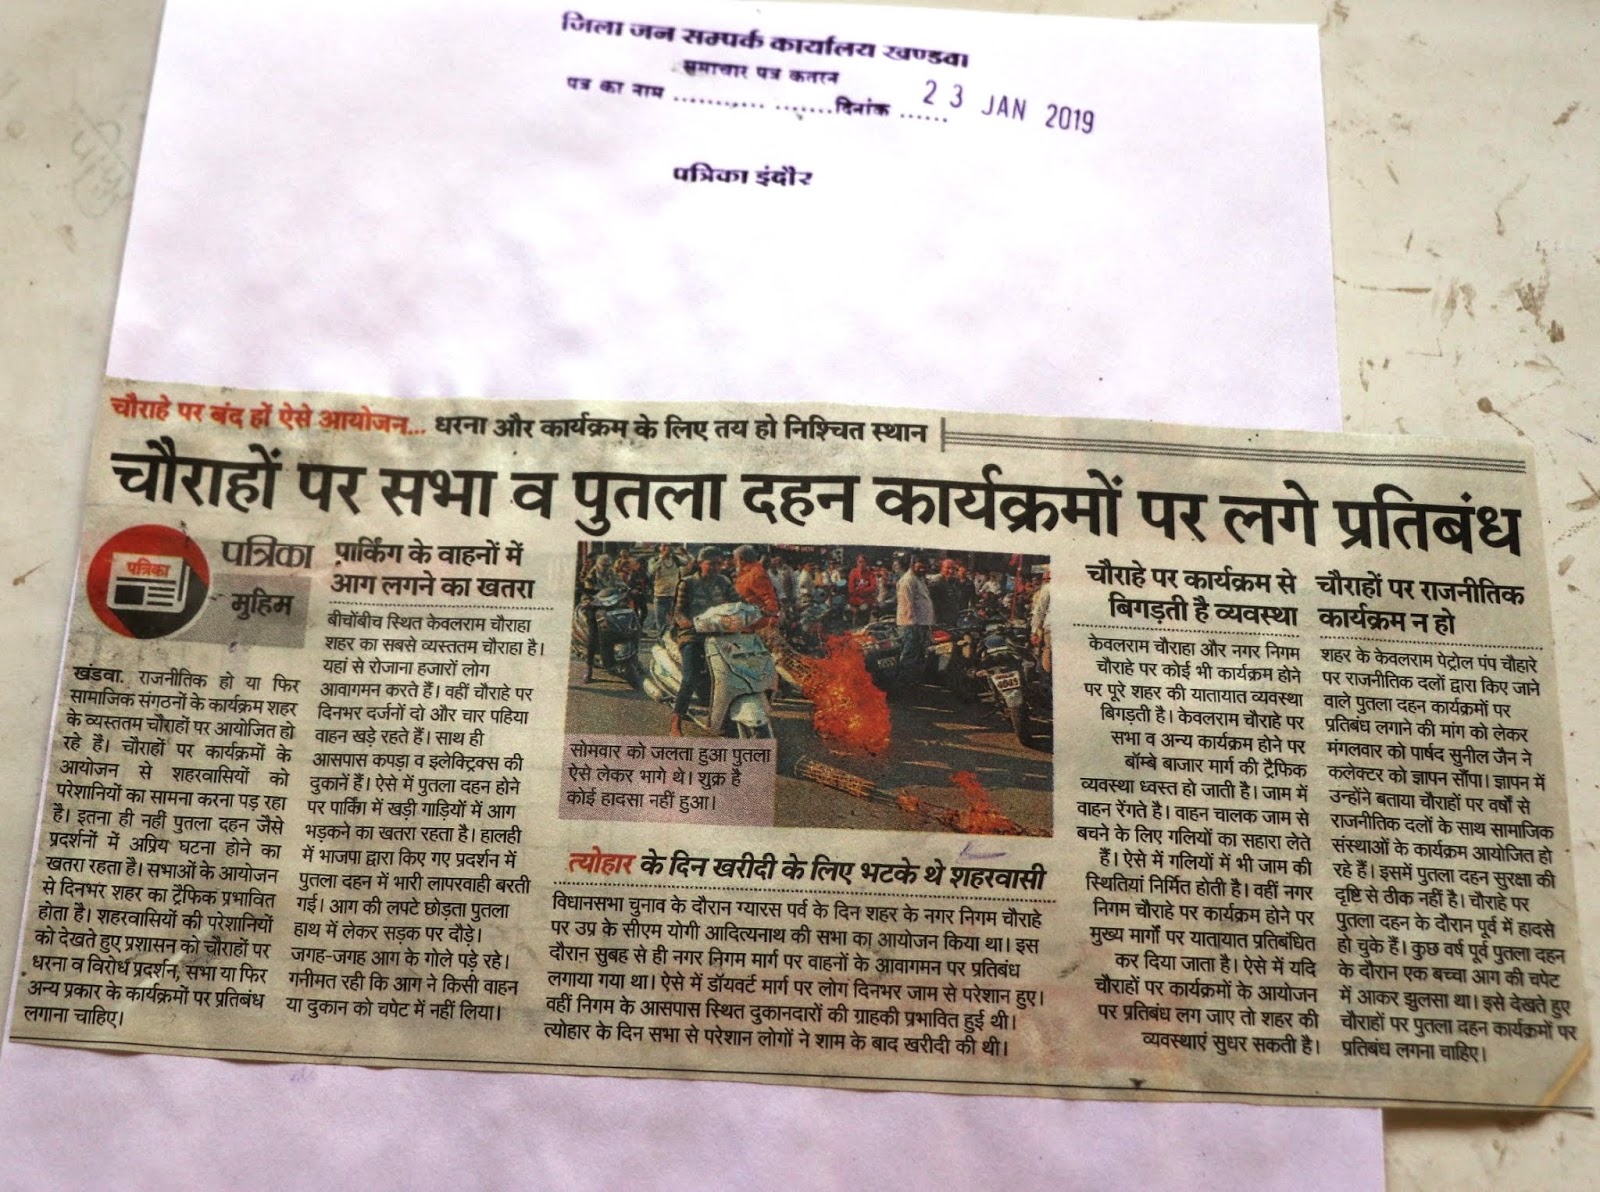 जिला जन सम्पर्क कार्यालय खण्डवा
समाचार पत्र कतरन
पत्र का नाम .................. दिनांक ...... 23 JAN 2019
पत्रिका इंदौर
चौराहे पर बंद हों ऐसे आयोजन... धरना और कार्यक्रम के लिए तय हो निश्चित स्थान
चौराहों पर सभा व पुतला दहन कार्यक्रमों पर लगे प्रतिबंध
पत्रिका
पत्रिका
मुहिम
खंडवा. राजनीतिक हो या फिर
सामाजिक संगठनों के कार्यक्रम शहर
के व्यस्ततम चौराहों पर आयोजित हो
रहे हैं। चौराहों पर कार्यक्रमों के
आयोजन से शहरवासियों को
परेशानियों का सामना करना पड़ रहा
है। इतना ही नहीं पुतला दहन जैसे
प्रदर्शनों में अप्रिय घटना होने का
खतरा रहता है। सभाओं के आयोजन
से दिनभर शहर का ट्रैफिक प्रभावित
होता है। शहरवासियों की परेशानियों
को देखते हुए प्रशासन को चौराहों पर
धरना व विरोध प्रदर्शन, सभा या फिर
अन्य प्रकार के कार्यक्रमों पर प्रतिबंध
लगाना चाहिए।
पार्किंग के वाहनों में
आग लगने का खतरा
बीचोंबीच स्थित केवलराम चौराहा
शहर का सबसे व्यस्ततम चौराहा है।
यहां से रोजाना हजारों लोग
आवागमन करते हैं। वहीं चौराहे पर
दिनभर दर्जनों दो और चार पहिया
वाहन खड़े रहते हैं। साथ ही
आसपास कपड़ा व इलेक्ट्रिक्स की
दुकानें हैं। ऐसे में पुतला दहन होने
पर पार्किंग में खड़ी गाड़ियों में आग
भड़कने का खतरा रहता है। हालही
में भाजपा द्वारा किए गए प्रदर्शन में
पुतला दहन में भारी लापरवाही बरती
गई। आग की लपटे छोड़ता पुतला
हाथ में लेकर सड़क पर दौड़े।
जगह-जगह आग के गोले पड़े रहे।
गनीमत रही कि आग ने किसी वाहन
या दुकान को चपेट में नहीं लिया।
सोमवार को जलता हुआ पुतला
ऐसे लेकर भागे थे। शुक्र है
कोई हादसा नहीं हुआ।
त्योहार के दिन खरीदी के लिए भटके थे शहरवासी
विधानसभा चुनाव के दौरान ग्यारस पर्व के दिन शहर के नगर निगम चौराहे
पर उप्र के सीएम योगी आदित्यनाथ की सभा का आयोजन किया था। इस
दौरान सुबह से ही नगर निगम मार्ग पर वाहनों के आवागमन पर प्रतिबंध
लगाया गया था। ऐसे में डॉयवर्ट मार्ग पर लोग दिनभर जाम से परेशान हुए।
वहीं निगम के आसपास स्थित दुकानदारों की ग्राहकी प्रभावित हुई थी।
त्योहार के दिन सभा से परेशान लोगों ने शाम के बाद खरीदी की थी।
चौराहे पर कार्यक्रम से
बिगड़ती है व्यवस्था
केवलराम चौराहा और नगर निगम
चौराहे पर कोई भी कार्यक्रम होने
पर पूरे शहर की यातायात व्यवस्था
बिगड़ती है। केवलराम चौराहे पर
सभा व अन्य कार्यक्रम होने पर
बॉम्बे बाजार मार्ग की ट्रैफिक
व्यवस्था ध्वस्त हो जाती है। जाम में
वाहन रेंगते है। वाहन चालक जाम से
बचने के लिए गलियों का सहारा लेते
हैं। ऐसे में गलियों में भी जाम की
स्थितियां निर्मित होती है। वहीं नगर
निगम चौराहे पर कार्यक्रम होने पर
मुख्य मार्गों पर यातायात प्रतिबंधित
कर दिया जाता है। ऐसे में यदि
चौराहों पर कार्यक्रमों के आयोजन
पर प्रतिबंध लग जाए तो शहर की
व्यवस्थाएं सुधर सकती है।
चौराहों पर राजनीतिक
कार्यक्रम न हो
शहर के केवलराम पेट्रोल पंप चौहारे
पर राजनीतिक दलों द्वारा किए जाने
वाले पुतला दहन कार्यक्रमों पर
प्रतिबंध लगाने की मांग को लेकर
मंगलवार को पार्षद सुनील जैन ने
कलेक्टर को ज्ञापन सौंपा। ज्ञापन में
उन्होंने बताया चौराहों पर वर्षों से
राजनीतिक दलों के साथ सामाजिक
संस्थाओं के कार्यक्रम आयोजित हो
रहे हैं। इसमें पुतला दहन सुरक्षा की
दृष्टि से ठीक नहीं है। चौराहे पर
पुतला दहन के दौरान पूर्व में हादसे
हो चुके हैं। कुछ वर्ष पूर्व पुतला दहन
के दौरान एक बच्चा आग की चपेट
में आकर झुलसा था। इसे देखते हुए
चौराहों पर पुतला दहन कार्यक्रमों पर
प्रतिबंध लगना चाहिए।